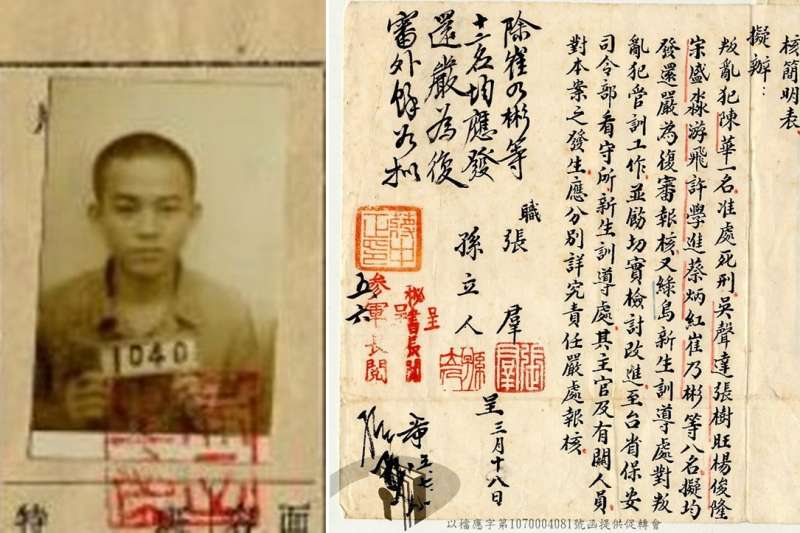 1040
特
核簡明表
擬辦：
叛亂犯陳華一名准處死刑吳聲達張樹旺楊俊隆
宋盛淼游飛許學進蔡炳紅崔乃彬等八名擬均
發還嚴為復審報核又綠島新生訓導處對叛
亂犯管訓工作並飭切實檢討改進至台省保安
司令部看守所新生訓導處其主官及有關人員
對本案之發生應分別詳究責任嚴處報核
職 張羣
孫立人
呈 三月十八日
除崔乃彬等
十二名均應發
還嚴為復
審外餘如擬
蔣中正印
五六
呈秘書長閱
呈參軍長閱
以檔應字第1070004081號函提供促轉會